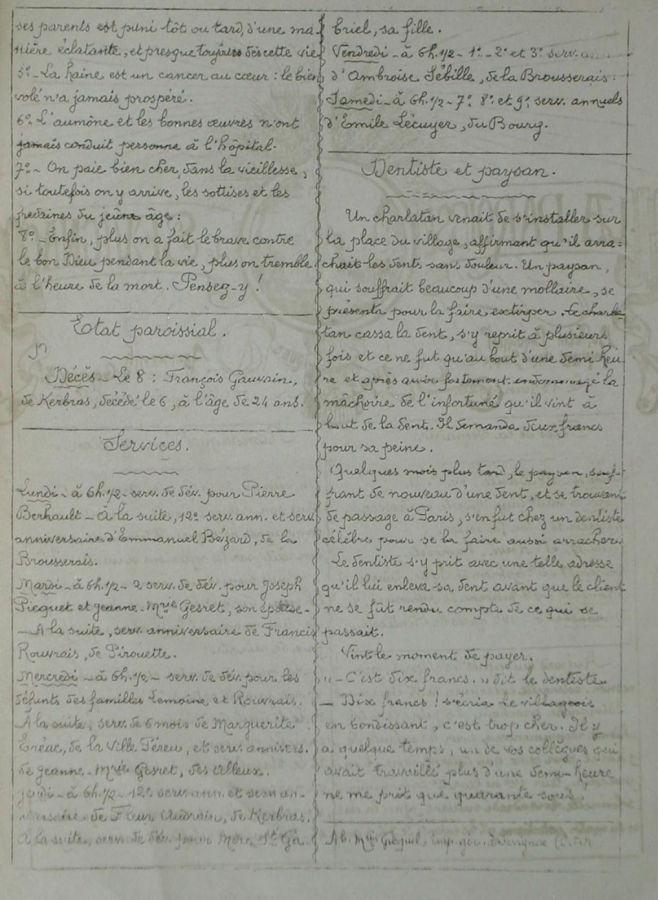 ses parents est puni tôt ou tard, d'une ma-
nière éclatante, et presque toujours dès cette vie
5º - La haine est un cancer au cœur : le bien
volé n'a jamais prospéré.
6º L'aumône et les bonnes œuvres n'ont
jamais conduit personne à l'hôpital.
7º - On paie bien cher, dans la vieillesse,
si toutefois on y arrive, les sottises et les
fredaines du jeûne âge :
8º - Enfin, plus on a fait le brave contre
le bon Dieu pendant la vie, plus on tremble
à l'heure de la mort. Pensez-y !
Etat paroissial.
Décès - Le 8 : François Gauvain,
de Kerbras, décédé le 6, à l'âge de 24 ans.
Services.
Lundi - à 6h.1/2 - serv. de dév. pour Pierre
Berhault - A la suite, 12e serv. ann. et serv.
anniversaire d'Emmanuel Bézard, de la
Brousserais.
Mardi - à 6h.1/2 - 2 serv. de dév. pour Joseph
Picquet et Jeanne-Mrie Gesret, son épouse -
- A la suite, serv. anniversaire de Francis
Rouvrais, de Pirouette.
Mercredi - à 6h.1/2 - serv. de dév. pour les
défunts des familles Lemoine et Rouvrais.
A la suite, serv. de 6 mois de Marguerite
Eréac, de la Ville Téreu, et serv. annivers.
de Jeanne-Mrie Gesret, des Alleux.
Jeudi - à 6h.1/2 - 12e serv. ann. et serv. an-
niversaire de Fleur Audrain, de Kerbras.
A la suite, serv. de dév. pour Mère St Ga-
briel, sa fille.
Vendredi - à 6h.1/2 - 1er - 2e et 3e serv.
d'Ambroise Sébille, de la Brousserais.
Samedi - à 6h.1/2 - 7e 8e et 9e serv. annuels
d'Emile Lécuyer, du Bourg.
Dentiste et paysan.
Un charlatan venait de s'installer sur
la place du village, affirmant qu'il arra=
chait les dents sans douleur. Un paysan,
qui souffrait beaucoup d'une mollaire, se
présenta pour la faire extirper. Le charla-
tan cassa la dent, s'y reprit à plusieurs
fois et ce ne fut qu'au bout d'une demi heu-
re et après avoir fortement endommagé la
mâchoire de l'infortuné qu'il vint à
but de la dent. Il demanda deux francs
pour sa peine.
Quelques mois plus tard, le paysan, souf-
frant de nouveau d'une dent, et se trouvant
de passage à Paris, s'en fut chez un dentiste
célèbre pour se la faire aussi arracher.
Le dentiste s'y prit avec une telle adresse
qu'il lui enleva sa dent avant que le client
ne se fût rendu compte de ce qui se
passait.
Vint le moment de payer.
"- C'est dix francs." dit le dentiste.
- Dix francs ! s'écria le villageois
en bondissant, c'est trop cher. Il y
a quelque temps, un de vos collègues qui
avait travaillé plus d'une demi-heure
ne me prit que quarante sous.